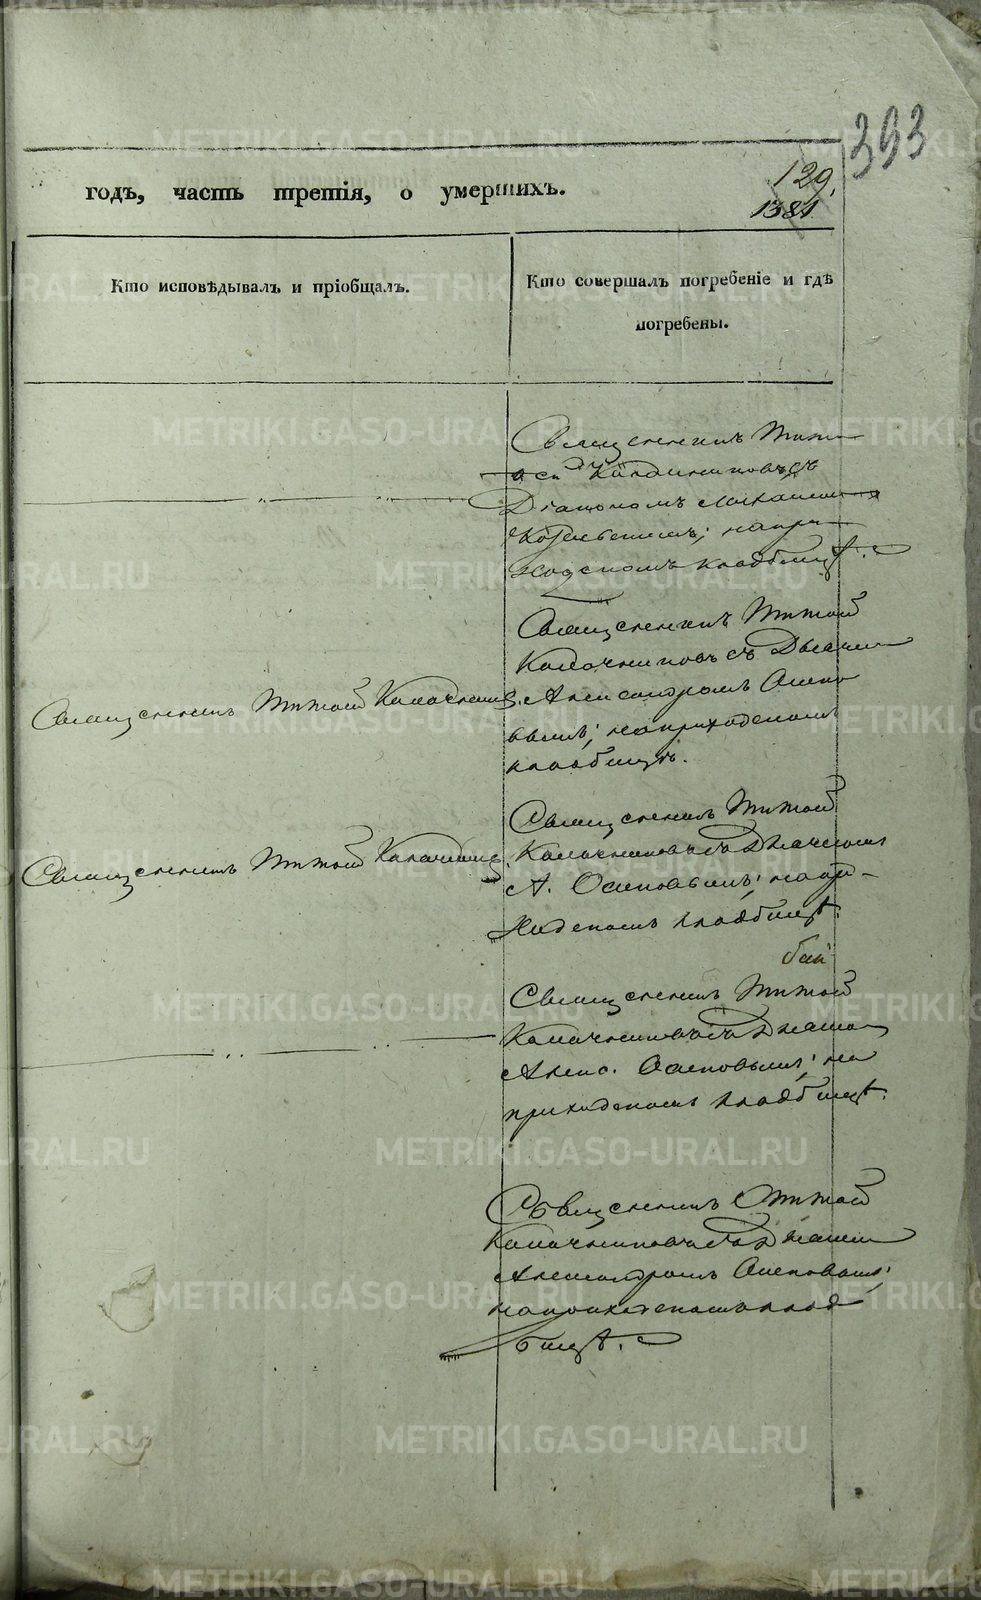 393
129
1381
годъ, часть третія, о умершихъ.
Кто исповѣдывалъ и пріобщалъ.
Кто совершалъ погребеніе и гдѣ
погребены.
Священникъ Тимо
ѳей Калачниковъ съ
Діакономъ
на при
ходскомъ кладбищѣ.
Священникъ Тимоѳей Калачник.
Священникъ Тимоѳей
Калачниковъ съ Дьячком
Александромъ Осипо
вымъ; на приходскомъ
кладбищѣ.
Священникъ Тимоѳей Калачник.
Священникъ Тимоѳей
Калачниковъ съ Дьячкомъ
А. Осиповымъ; на при
ходскомъ кладбищѣ.
Священникъ Тимоѳей
Калачниковъ съ Дьячко
Алекс. Осиповымъ; на
приходскомъ кладбищѣ.
Священникъ Тимоѳей
Калачниковъ съ Дьячком
Александромъ Осиповымъ;
на приходскомъ клад
бищѣ.
METRIKI.GASO-URAL.RU